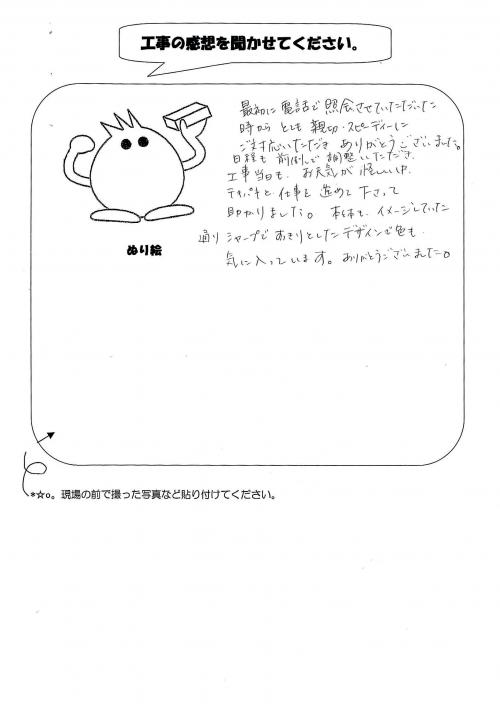 工事の感想を聞かせてください。
最初に電話で照会させていただいた
時から とても 親切・スピーディーに
ご対応いただき ありがとうございました。
日程も 前倒しで 調整いただき
工事当日も、お天気が 怪しい中
テキパキと 仕事を 進めて 下さって
助かりました。 本体も、イメージしていた
通り シャープで あきりとしたデザインで色も
気に入っています。ありがとうございました。
ぬり絵
*☆o。現場の前で撮った写真など貼り付けてください。